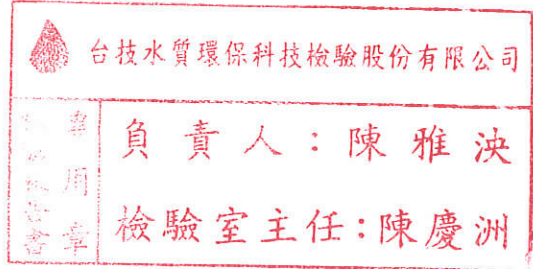 台技水質環保科技檢驗股份有限公司
負責人：陳雅泱
檢驗室主任：陳慶洲
專用章